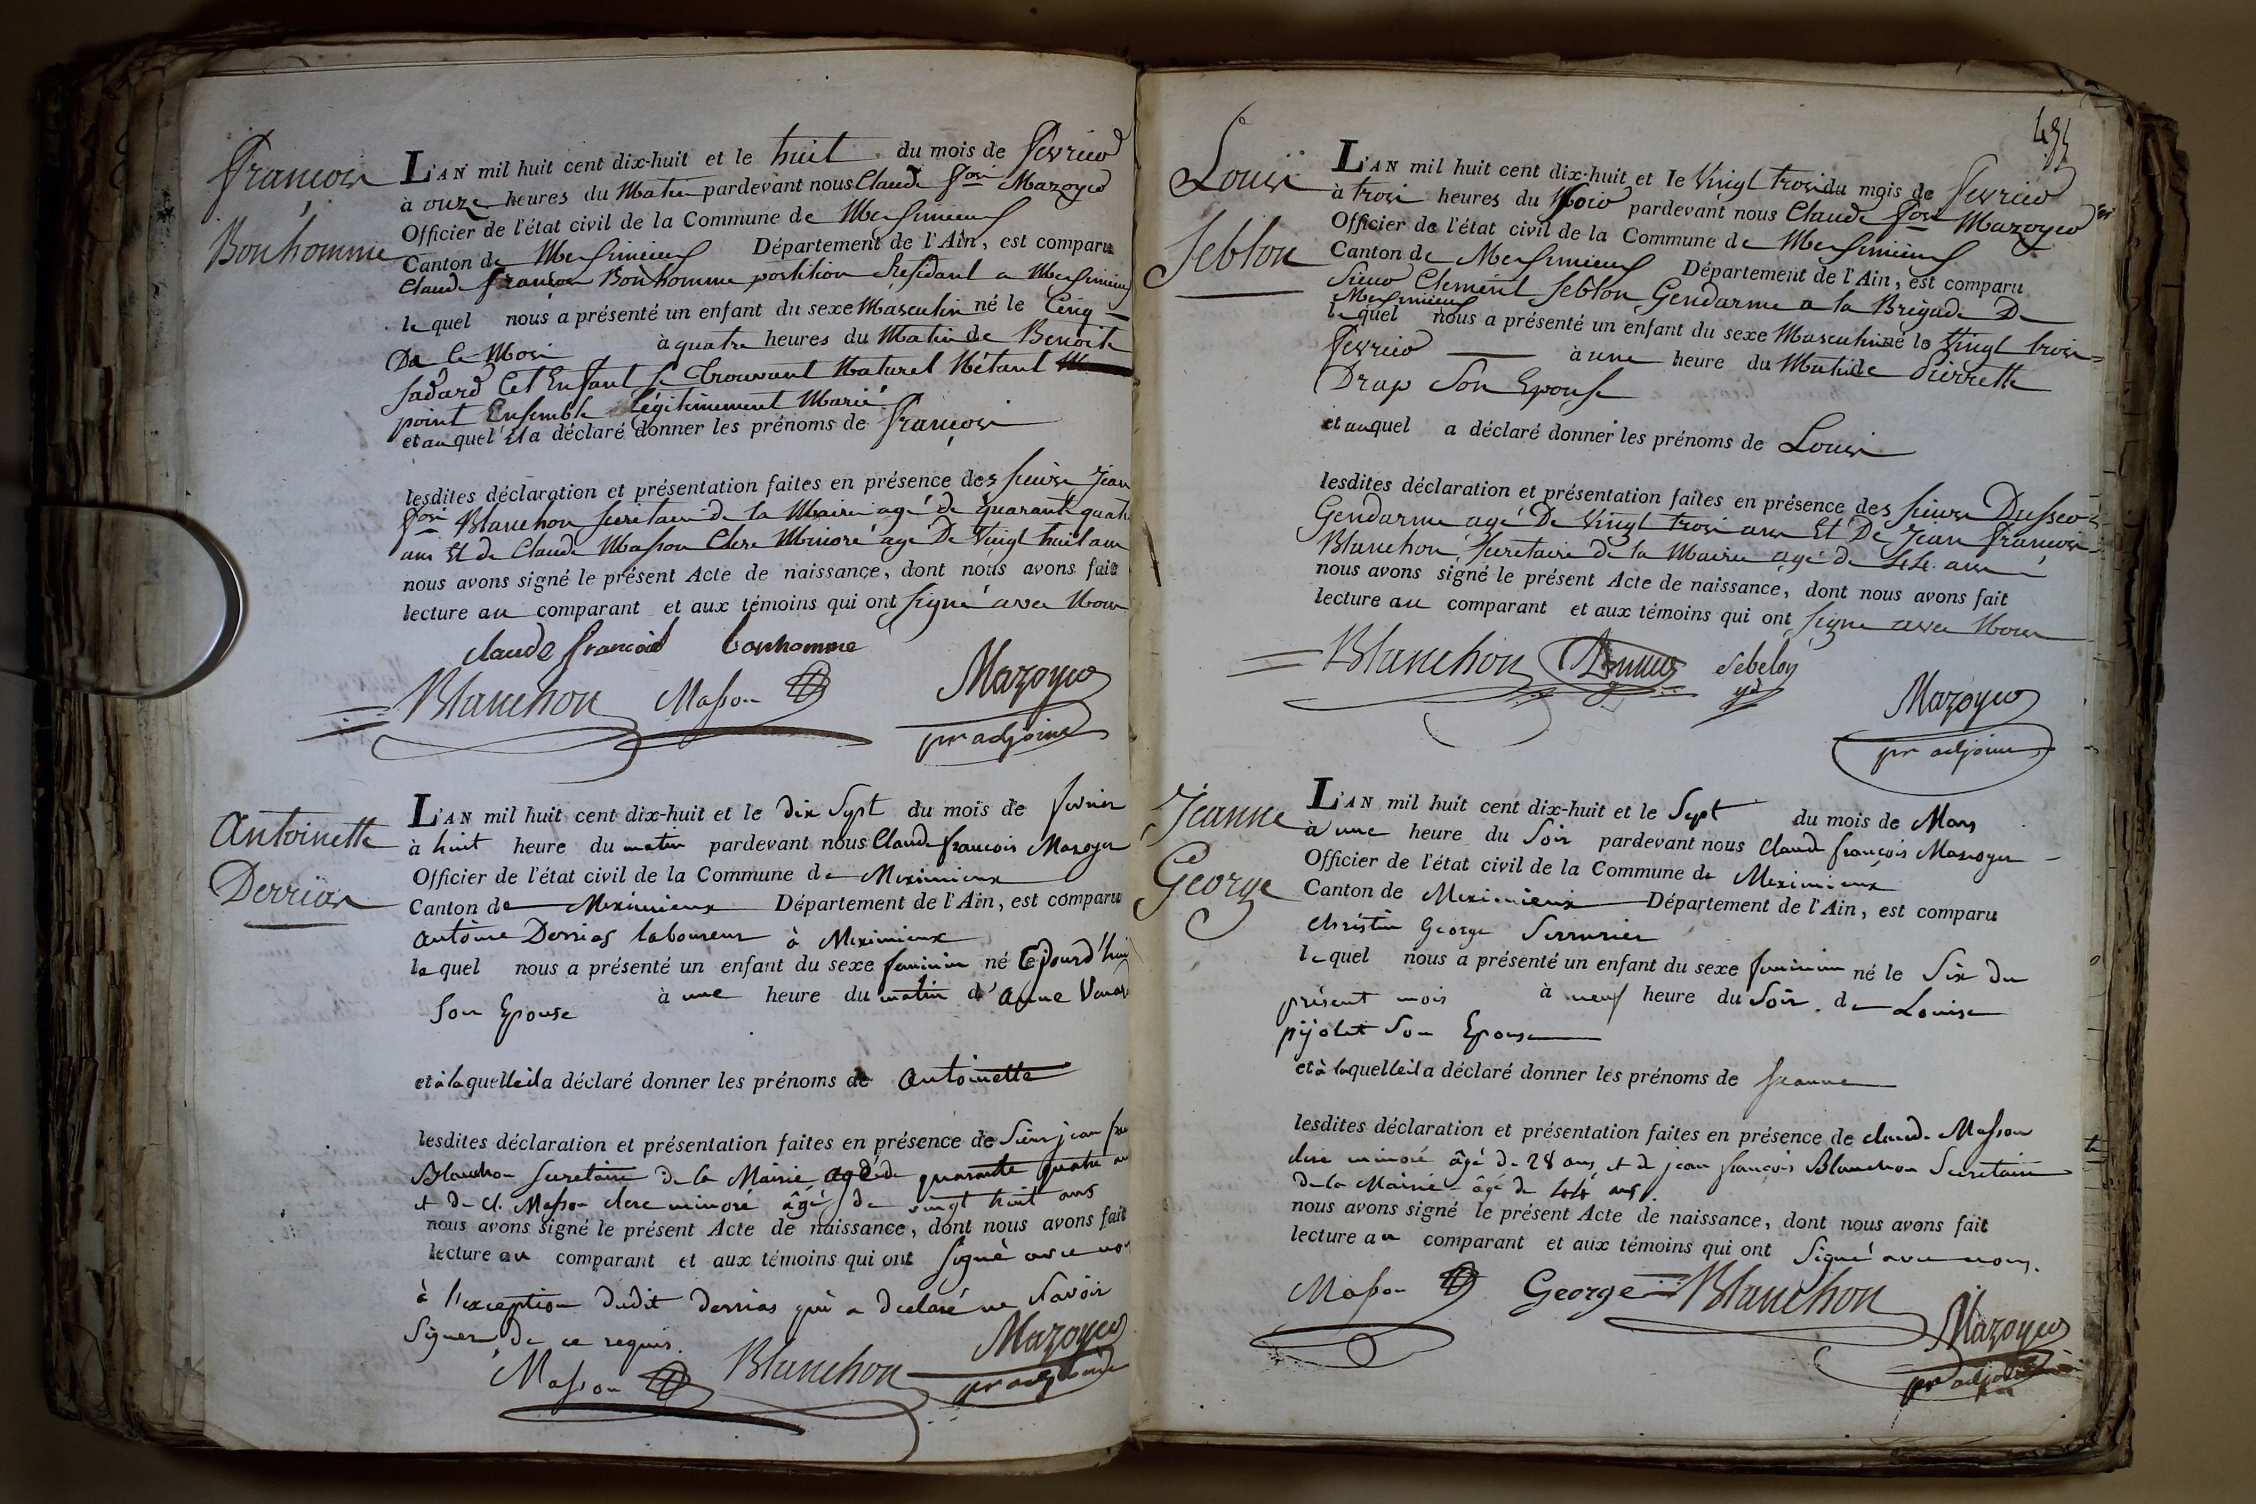 François
Bonhomme
L'AN mil huit cent dix-huit et le huit du mois de fevrier
à onze heures du Matin pardevant nous Claude fois Mazoyer
Officier de l'état civil de la Commune de Meximieux
Canton de Meximieux Département de l'Ain, est comparu
Claude françois Bonhomme postition Residant a Meximieux
lequel nous a présenté un enfant du sexe Masculin né le Cinq
De Ce Mois à quatre heures du Matin de Benoite
fadard Cet Enfant se trouvant Naturel N'étant
point Ensemble Légitimement Marié
et auquel il a déclaré donner les prénoms de françois
lesdites déclaration et présentation faites en présence des sieurs Jean
fois Blanchon secretaire de la Mairie agé de quarante quatre
ans Et de Claude Masson Clerc Minoré agé De Vingt huit ans
nous avons signé le présent Acte de naissance, dont nous avons fait
lecture au comparant et aux témoins qui ont signé avec Nous
claude françois bonhomme
Blanchon Masson Mazoyer
pr adjoint
Antoinette
Derrias
L'AN mil huit cent dix-huit et le dix Sept du mois de fevrier
à huit heure du matin pardevant nous Claude françois Mazoyer
Officier de l'état civil de la Commune de Meximieux
Canton de Meximieux Département de l'Ain, est comparu
Antoine Derrias laboureur à Meximieux
lequel nous a présenté un enfant du sexe feminin né Cejourd'hui
à une heure du matin d'anne
Son Epouse
et à laquelle il a déclaré donner les prénoms de antoinette
lesdites déclaration et présentation faites en présence de Sieur jean
Blanchon Secretaire de la Mairie agé de quarante quatre ans
et de cl. Masson clerc minoré âgé de vingt huit ans
nous avons signé le présent Acte de naissance, dont nous avons fait
lecture au comparant et aux témoins qui ont signé avec nous
à l'exception dudit derrias qui a declaré ne Savoir
Signer de ce requis.
Masson Blanchon Mazoyer
pr adjoint
Louis
Seblon
L'AN mil huit cent dix-huit et le Vingt trois du mois de fevrier
à trois heures du Soir pardevant nous Claude fois Mazoyer
Officier de l'état civil de la Commune de Meximieux
Canton de Meximieux Département de l'Ain, est comparu
Sieur Clement Seblon Gendarme a la Brigade De
Meximieux
lequel nous a présenté un enfant du sexe Masculin né le Vingt trois
fevrier à une heure du Matin de Pierrette
Drap Son Epouse
et auquel a déclaré donner les prénoms de Louis
lesdites déclaration et présentation faites en présence des sieurs
Gendarme agé De Vingt trois ans Et De Jean françois
Blanchon secretaire de la Mairie agé de 44 ans
nous avons signé le présent Acte de naissance, dont nous avons fait
lecture au comparant et aux témoins qui ont signé avec Nous
Blanchon sebelon
Mazoyer
pr adjoint
Jeanne
George
L'AN mil huit cent dix-huit et le Sept du mois de Mars
à une heure du Soir pardevant nous Claude françois Mazoyer
Officier de l'état civil de la Commune de Meximieux
Canton de Meximieux Département de l'Ain, est comparu
christin George Serrurier
lequel nous a présenté un enfant du sexe feminin né le Six du
présent mois à neuf heure du Soir de Louise
pijolet Son Epouse
et à laquelle il a déclaré donner les prénoms de Jeanne
lesdites déclaration et présentation faites en présence de claude Masson
clerc minoré âgé de 28 ans et de jean françois Blanchon Secretaire
de la Mairie âgé de 44 ans.
nous avons signé le présent Acte de naissance, dont nous avons fait
lecture au comparant et aux témoins qui ont Signé avec nous.
Masson George Blanchon
Mazoyer
pr adjoint